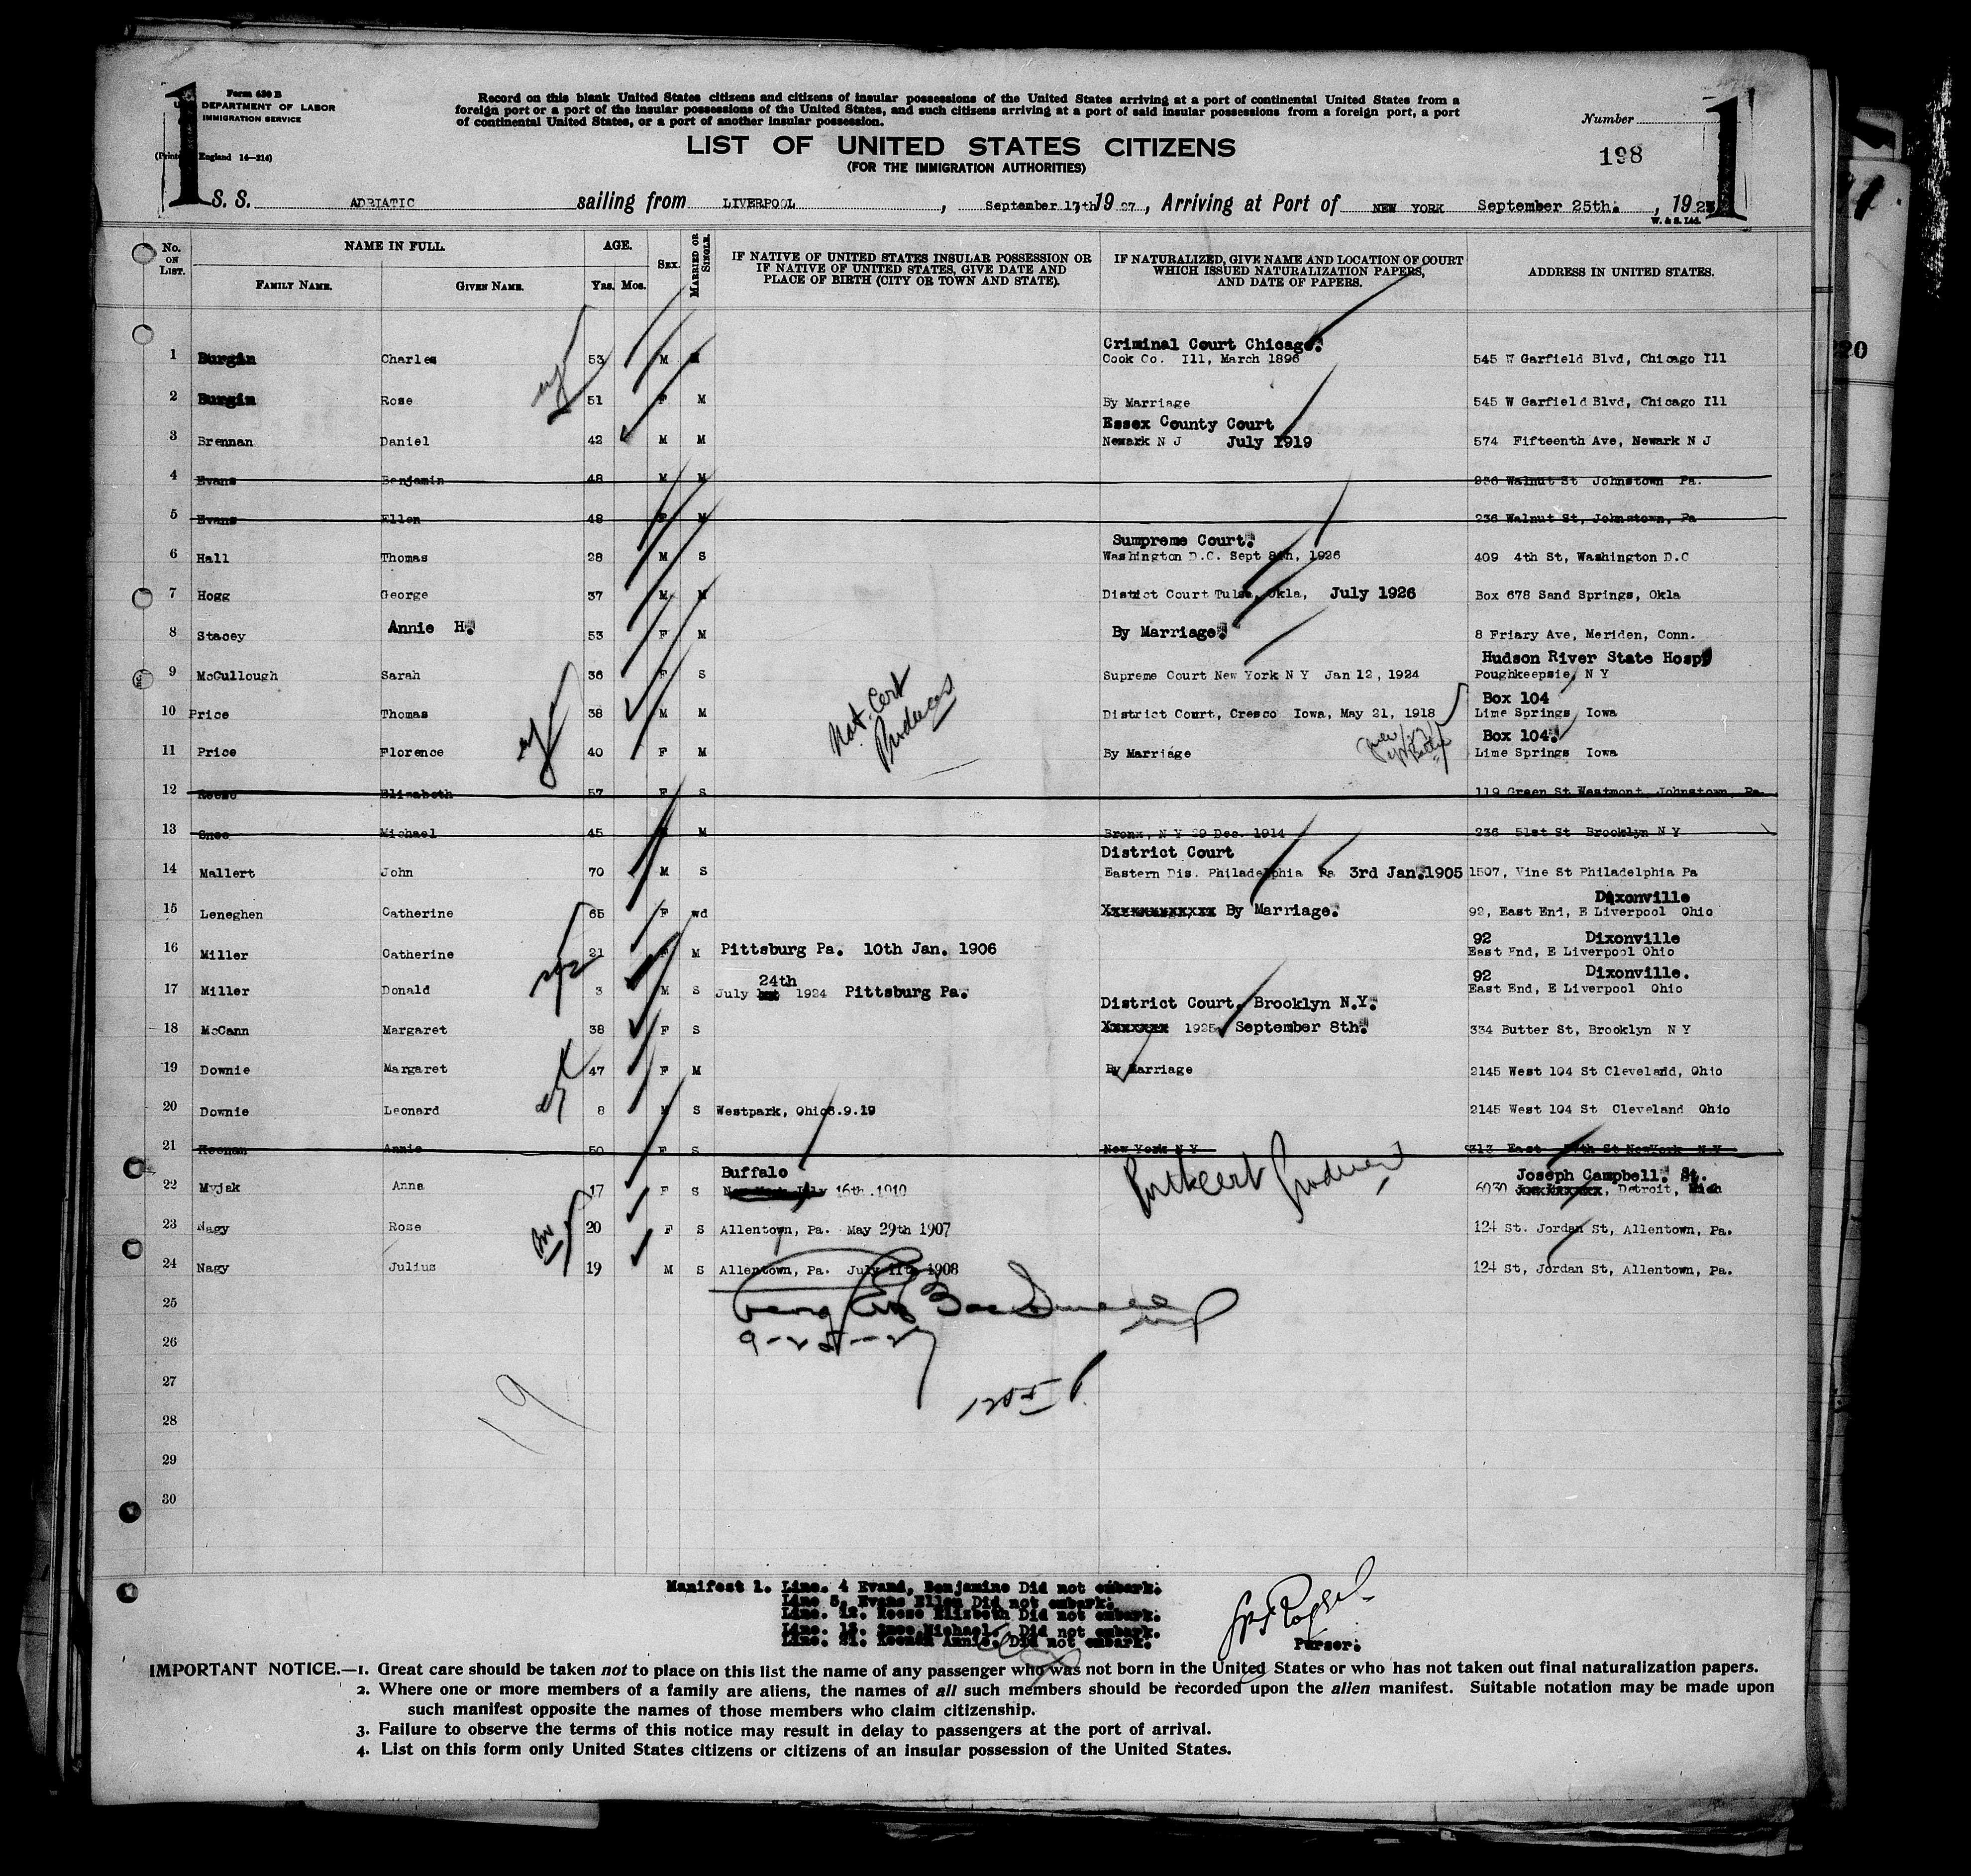 1
1
Form 630 B
U. S. DEPARTMENT OF LABOR
IMMIGRATION SERVICE
(Printed England 14—214)
Record on this blank United States citizens and citizens of insular possessions of the United States arriving at a port of continental United States from a
foreign port or a port of the insular possessions of the United States, and such citizens arriving at a port of said insular possessions from a foreign port, a port
of continental United States, or a port of another insular possession.
Number
LIST OF UNITED STATES CITIZENS
(FOR THE IMMIGRATION AUTHORITIES)
198
S. S. ADRIATIC sailing from LIVERPOOL, September 17th 1927, Arriving at Port of NEW YORK September 25th., 192
W. & S. Ltd.
No. ON LIST. NAME IN FULL. AGE. SEX. MARRIED OR SINGLE. IF NATIVE OF UNITED STATES INSULAR POSSESSION OR IF NATIVE OF UNITED STATES, GIVE DATE AND PLACE OF BIRTH (CITY OR TOWN AND STATE). IF NATURALIZED, GIVE NAME AND LOCATION OF COURT WHICH ISSUED NATURALIZATION PAPERS, AND DATE OF PAPERS. ADDRESS IN UNITED STATES.
FAMILY NAME. GIVEN NAME. Yrs. Mos.
Criminal Court Chicago.
1 Burgin Charles 53 M M Cook Co. Ill, March 1896 545 W Garfield Blvd, Chicago Ill
2 Burgin Rose 51 F M By Marriage 545 W Garfield Blvd, Chicago Ill
Essex County Court
3 Brennan Daniel 42 M M Newark N J July 1919 574 Fifteenth Ave, Newark N J
4 Evans Benjamin 48 M M 236 Walnut St Johnstown Pa.
5 Evans Ellen 48 F M 236 Walnut St, Johnstown, Pa
Sumpreme Court.
6 Hall Thomas 28 M S Washington D.C. Sept 8th, 1926 409 4th St, Washington D.C
7 Hogg George 37 M M District Court Tulsa, Okla, July 1926 Box 678 Sand Springs, Okla
8 Stacey Annie H. 53 F M By Marriage. 8 Friary Ave, Meriden, Conn.
Hudson River State Hosp
9 McCullough Sarah 36 F S Supreme Court New York N Y Jan 12, 1924 Poughkeepsie, N Y
Nat. Cert
Produces
Box 104
10 Price Thomas 38 M M District Court, Cresco Iowa, May 21, 1918 Lime Springs Iowa
Box 104.
11 Price Florence 40 F M By Marriage Lime Springs Iowa
12 Reese Elizabeth 57 F S 119 Green St Westmont, Johnstown, Pa.
13 Snee Michael 45 M Bronx, N Y 29 Dec. 1914 236 51st St Brooklyn N Y
District Court
14 Mallert John 70 M S Eastern Dis. Philadelphia Pa 3rd Jan.1905 1507, Vine St Philadelphia Pa
Dixonville
15 Leneghen Catherine 65 F wd By Marriage. 92, East End, E Liverpool Ohio
92 Dixonville
16 Miller Catherine 21 F M Pittsburg Pa. 10th Jan. 1906 East End, E Liverpool Ohio
24th 92 Dixonville.
17 Miller Donald 3 M S July 1924 Pittsburg Pa. East End, E Liverpool Ohio
District Court, Brooklyn N.Y.
18 McCann Margaret 38 F S 1925 September 8th. 334 Butter St, Brooklyn N Y
19 Downie Margaret 47 F M By Marriage 2145 West 104 St Cleveland, Ohio
20 Downie Leonard 8 M S Westpark, Ohio 6.9.19 2145 West 104 St Cleveland Ohio
21 Keenan Annie 50 F S New York N Y 313 East St New York N Y
Buffalo Joseph Campbell. St.
22 Myjak Anna 17 F S 16th.1910 6030, Detroit, Mich
23 Nagy Rose 20 F S Allentown, Pa. May 29th 1907 124 St. Jordan St, Allentown, Pa.
24 Nagy Julius 19 M S Allentown, Pa. July 11th 1908 124 St, Jordan St, Allentown, Pa.
25
9-25-27
26
27
28
29
30
19
Manifest 1. Line. 4 Evand, Benjamine Did not embark.
Line 5. Evans Ellen Did not embark.
Line. 12. Reese Elizbeth Did not embark.
Line. 13. Snee Michael. Did not embark.
Line. 21. Keenan Annie. Did not embark.
Purser.
IMPORTANT NOTICE.—1. Great care should be taken not to place on this list the name of any passenger who was not born in the United States or who has not taken out final naturalization papers.
2. Where one or more members of a family are aliens, the names of all such members should be recorded upon the alien manifest. Suitable notation may be made upon
such manifest opposite the names of those members who claim citizenship.
3. Failure to observe the terms of this notice may result in delay to passengers at the port of arrival.
4. List on this form only United States citizens or citizens of an insular possession of the United States.